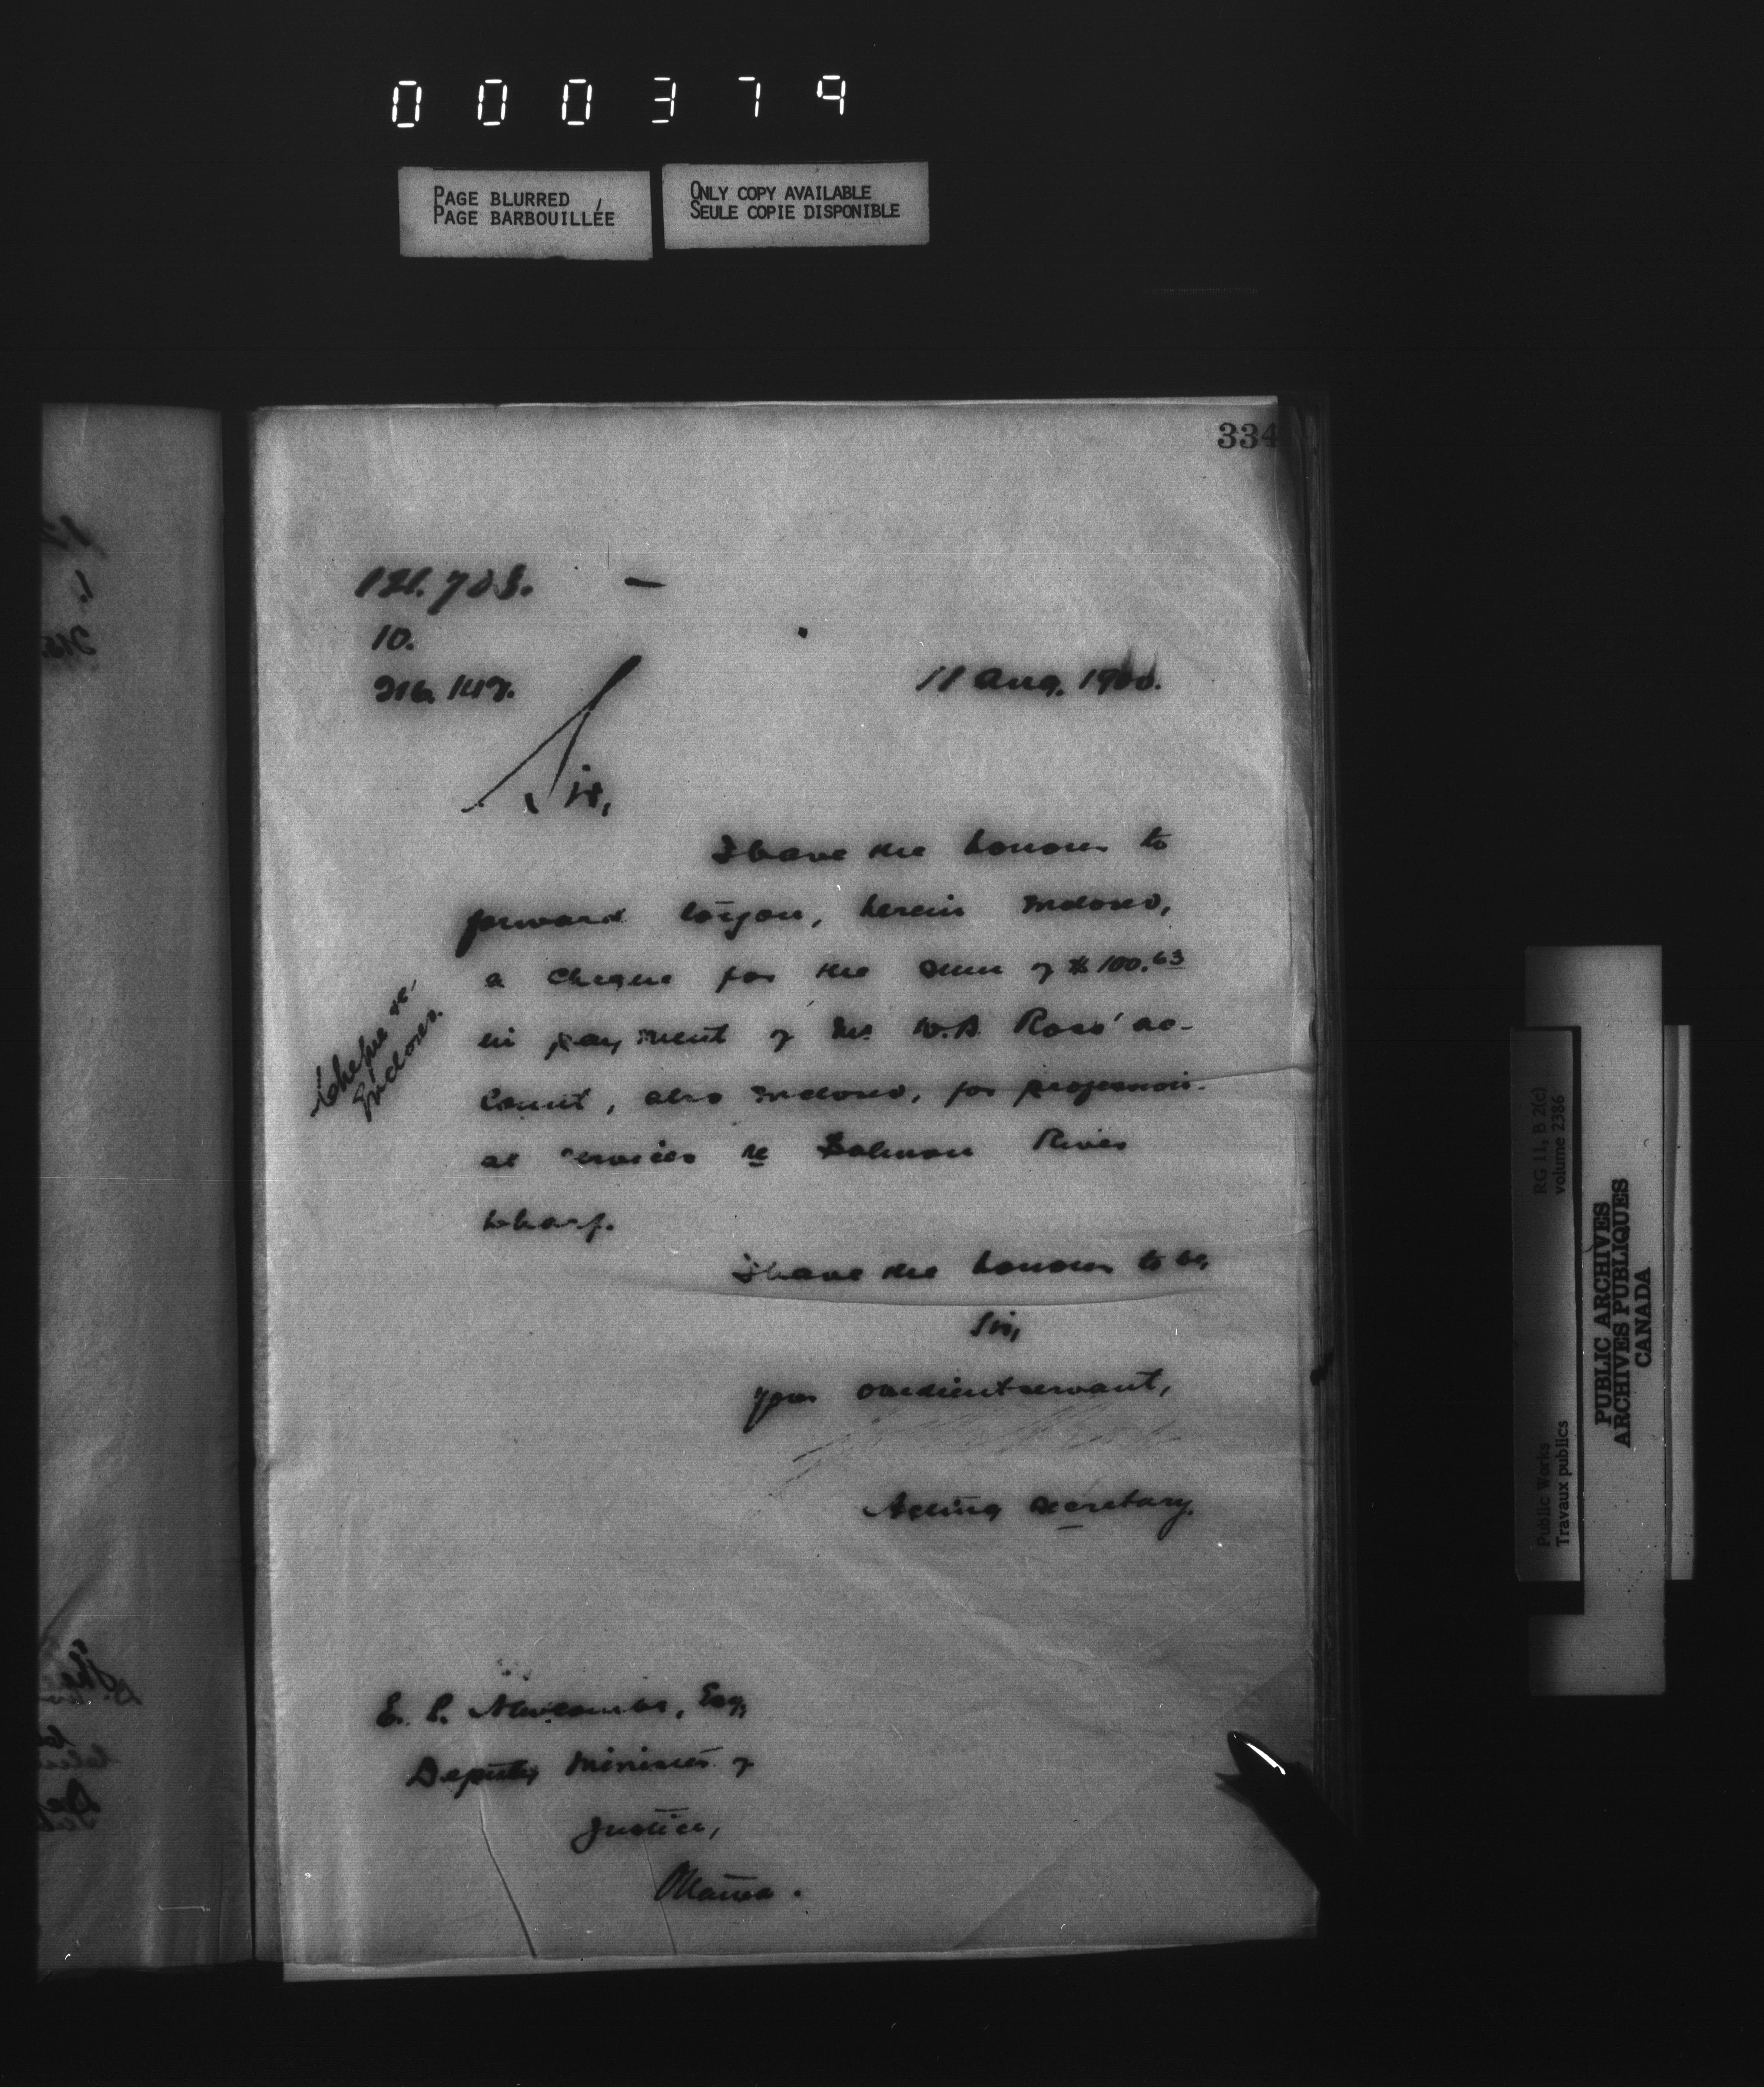 000379
PAGE BLURRED
PAGE BARBOUILLÉE
ONLY COPY AVAILABLE
SEULE COPIE DISPONIBLE
334
10.
11 Aug. 1900.
Sir,
I have the honour to
forward to you, herein inclosed,
a cheque for the sum of $100.63
in payment of Mr. W.B. Ross' ac-
count, also inclosed, for profession-
al services re Salmon River
wharf.
Cheque &c.
Inclosed.
I have the honour to be,
Sir,
your obedient servant,
Acting Secretary.
E. L. Newcombe, Esq,
Deputy Minister of
Justice,
Ottawa.
RG 11, B 2(c)
volume 2386
Public Works
Travaux publics
PUBLIC ARCHIVES
ARCHIVES PUBLIQUES
CANADA